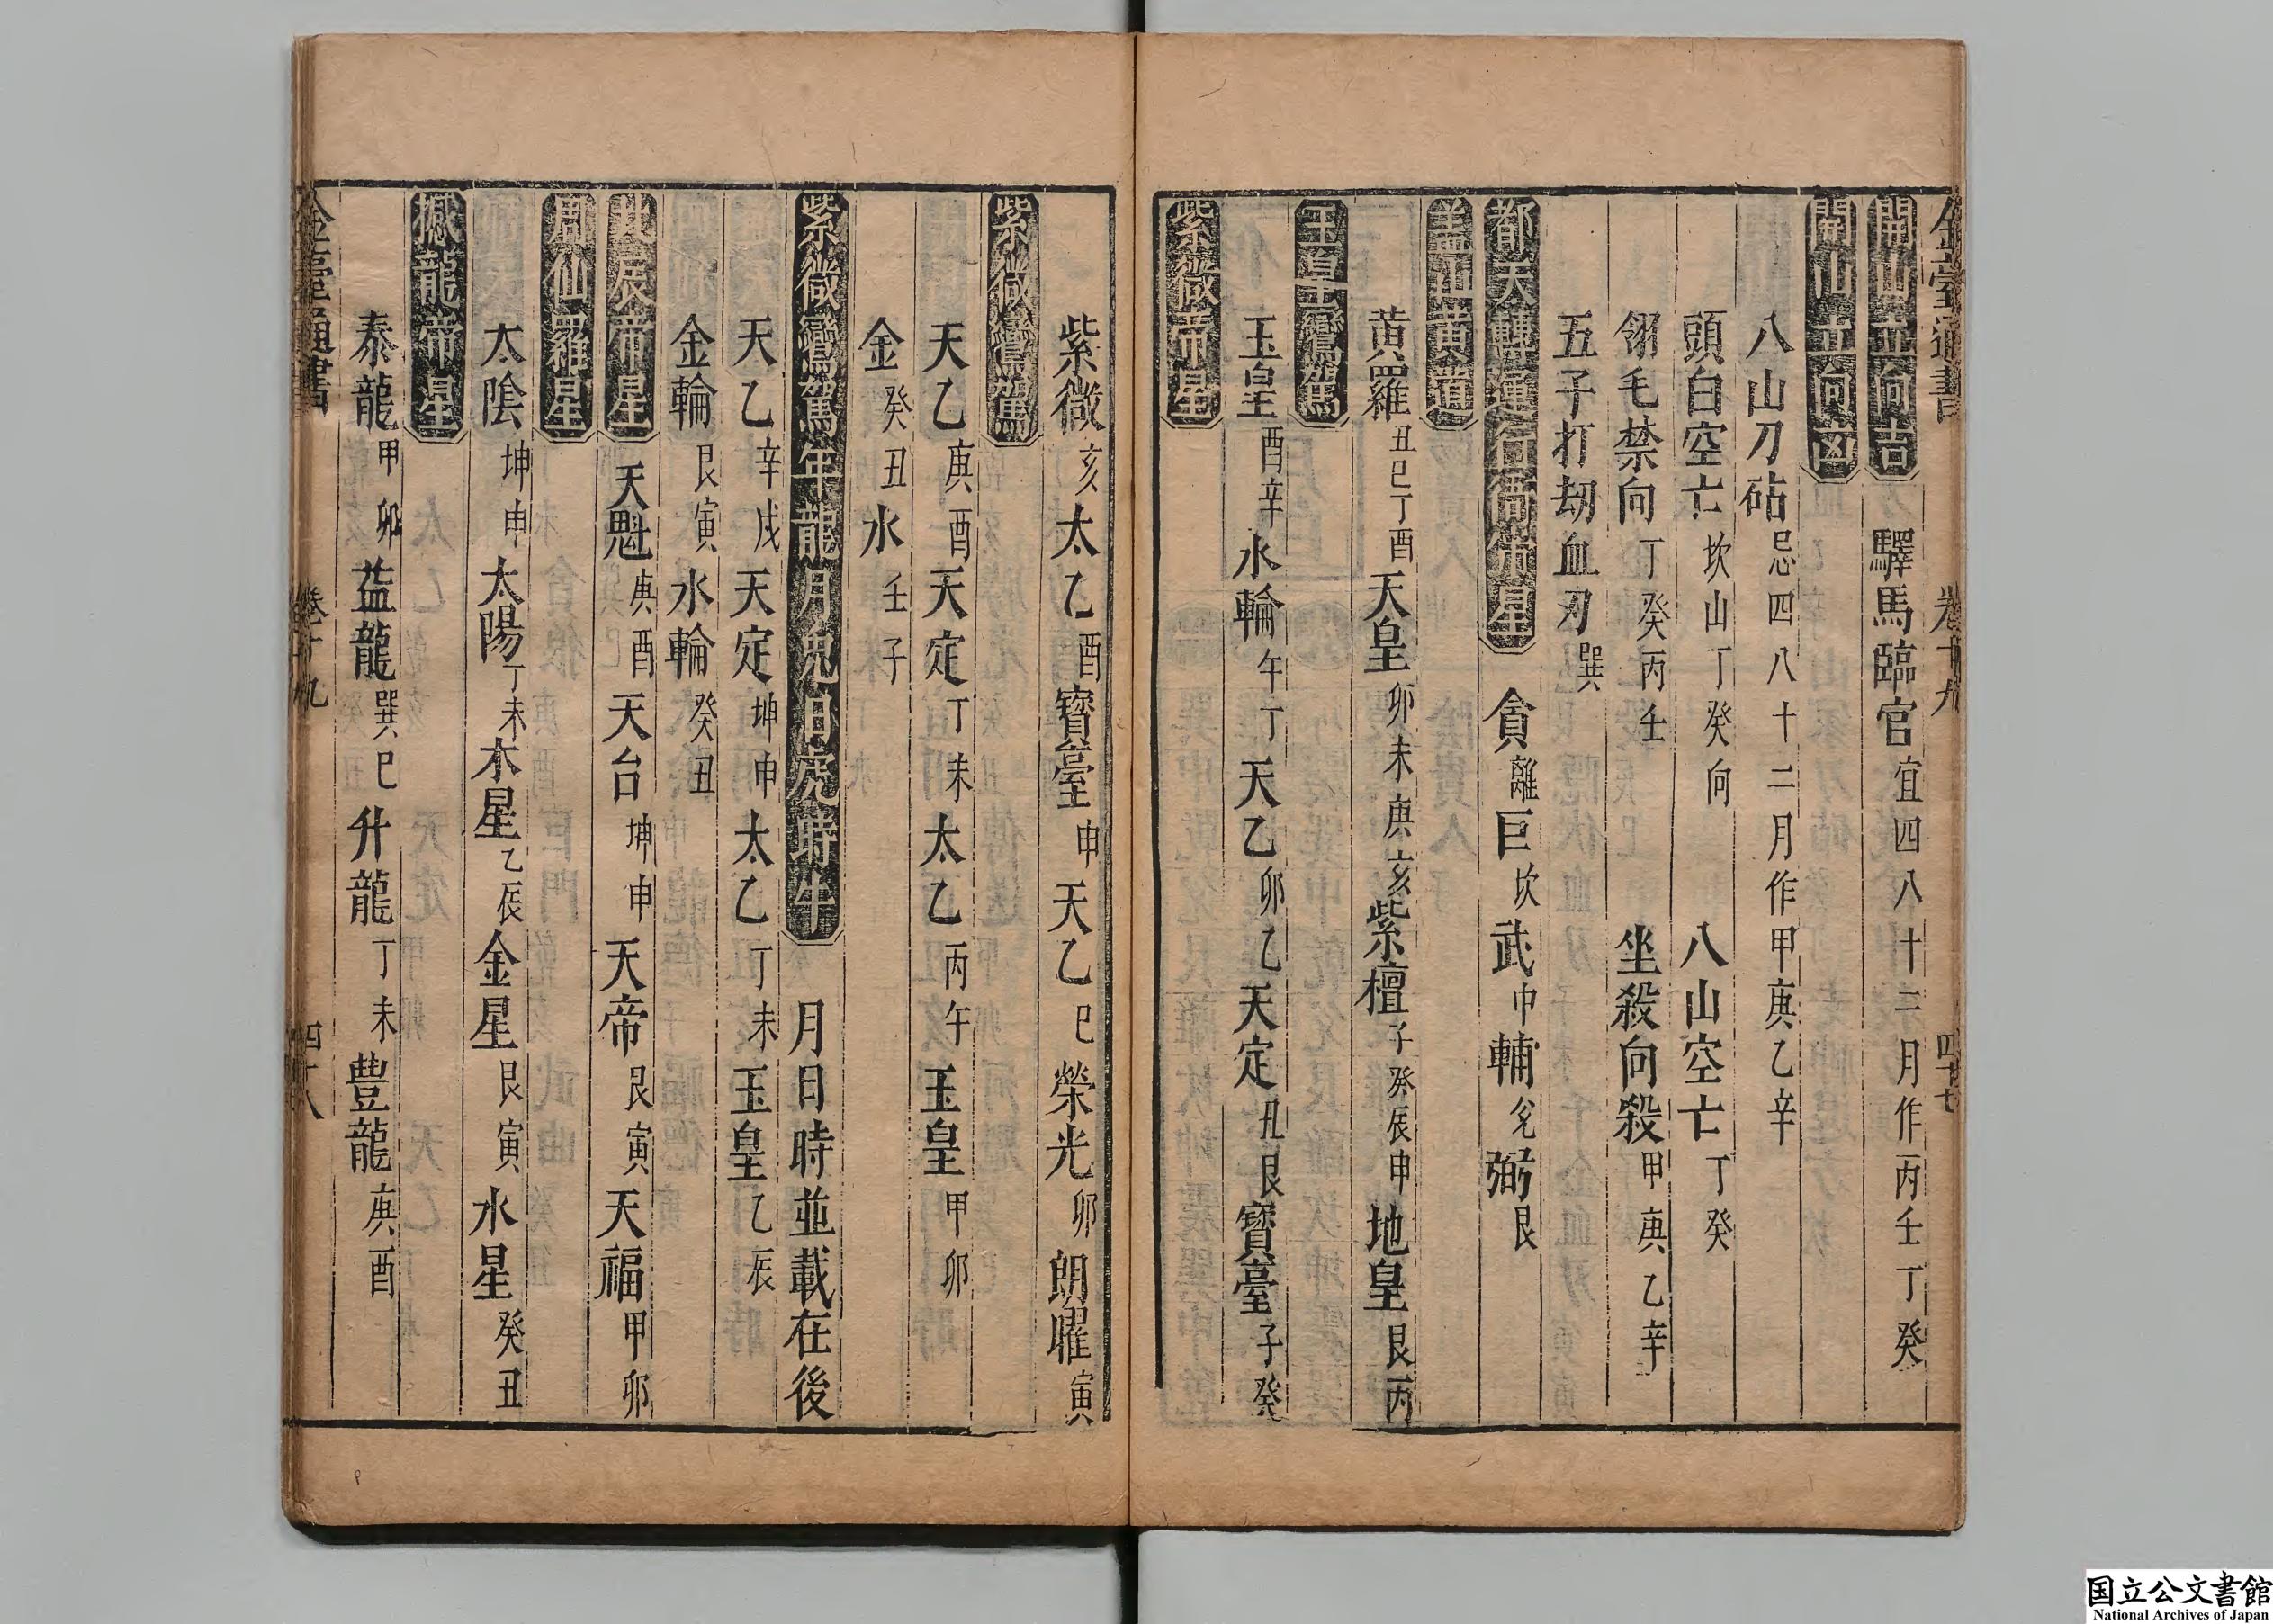 金臺通書 卷十九 四十七
開山立向吉 驛馬臨官宜四八十二月作丙壬丁癸
開山立向凶
八山刀砧忌四八十二月作甲庚乙辛
頭白空亡坎山丁癸向 八山空亡丁癸
翎毛禁向丁癸丙壬 坐殺向殺甲庚乙辛
五子打刼血刃巽
都天轉運行衙帝星 貪離巨坎武中輔兌弼艮
蓋山黃道
黃羅丑巳丁酉天皇卯未庚亥紫檀子癸辰申地皇艮丙
玉皇鸞駕
玉皇酉辛水輪午丁天乙卯乙天定丑艮寳臺子癸
紫微帝星
紫微亥太乙酉寳臺申天乙巳榮光卯朗曜寅
紫微鸞駕
天乙庚酉天定丁未太乙丙午玉皇甲卯
金癸丑水壬子
紫微鸞駕年龍月兎日虎時牛 月日時並載在後
天乙辛戌天定坤申太乙丁未玉皇乙辰
金輪艮寅水輪癸丑
北辰帝星 天魁庚酉天台坤申天帝艮寅天福甲卯
周仙羅星
太陰坤申太陽丁未木星乙辰金星艮寅水星癸丑
撼龍帝星
泰龍甲卯益龍巽巳升龍丁未豊龍庚酉
金臺通書 卷十九 四十八
国立公文書館
National Archives of Japan